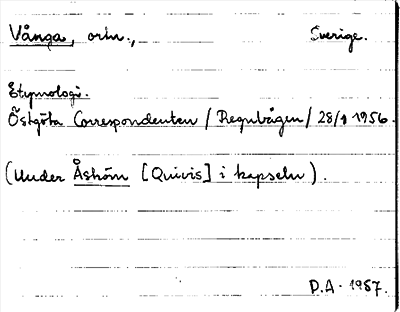 Vånga, ortn., Sverige.
Etymologi.
Östgöta Correspondenten / Regnbågen / 28/9 1956.
(Under Åström [Quivis] i kapseln).
D.A. 1987.